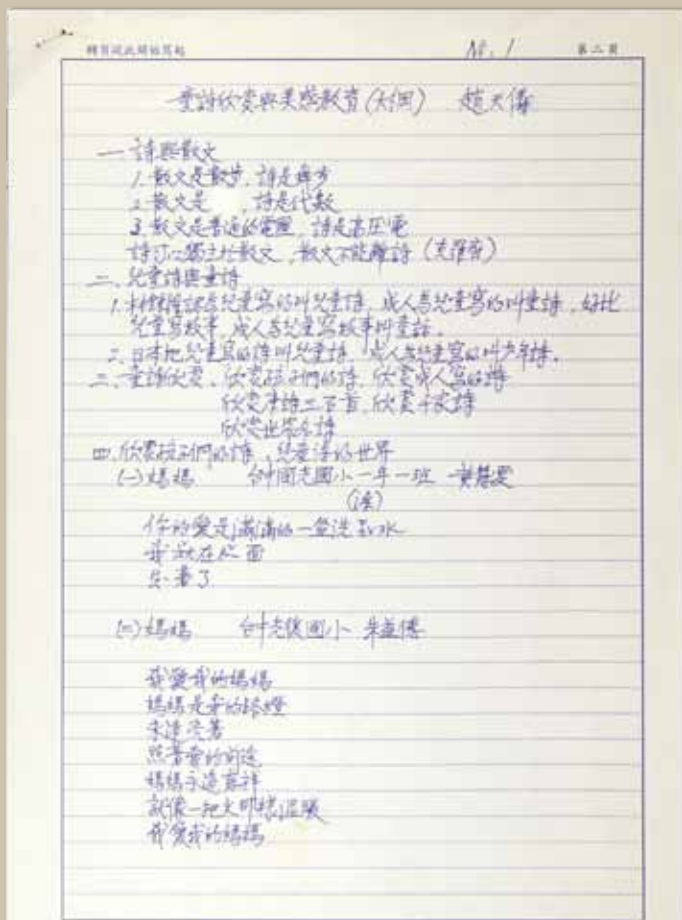 No. 1 第二頁
童詩欣賞與美感教育(大綱) 趙天儀
一 詩與散文
1. 散文是散步,詩是舞步
2. 散文是 ,詩是代數
3. 散文是普通的電壓,詩是高壓電
詩可以獨立於散文,散文不能離詩
二、兒童詩與童詩
1. 林鍾隆認為兒童寫的叫兒童詩,成人為兒童寫的叫童詩,好比
兒童寫故事,成人為兒童寫故事叫童話。
2. 日本把兒童寫的詩叫兒童詩,成人為兒童寫的叫少年詩。
三、童詩欣賞、欣賞孩子們的詩、欣賞成人寫的詩
欣賞唐詩三百首、欣賞千家詩
欣賞世界名詩
四、欣賞孩子們的詩,兒童詩的世界
(一)媽媽 台中國光國小一年一班
你的愛是滿滿的一盆洗澡水
我就在裡面
(二)媽媽 台中光復國小 朱益傳
我愛我的媽媽
媽媽是我的路燈
永遠亮著
照著我的前途
媽媽永遠慈祥
就像一把火那樣溫暖
我愛我的媽媽